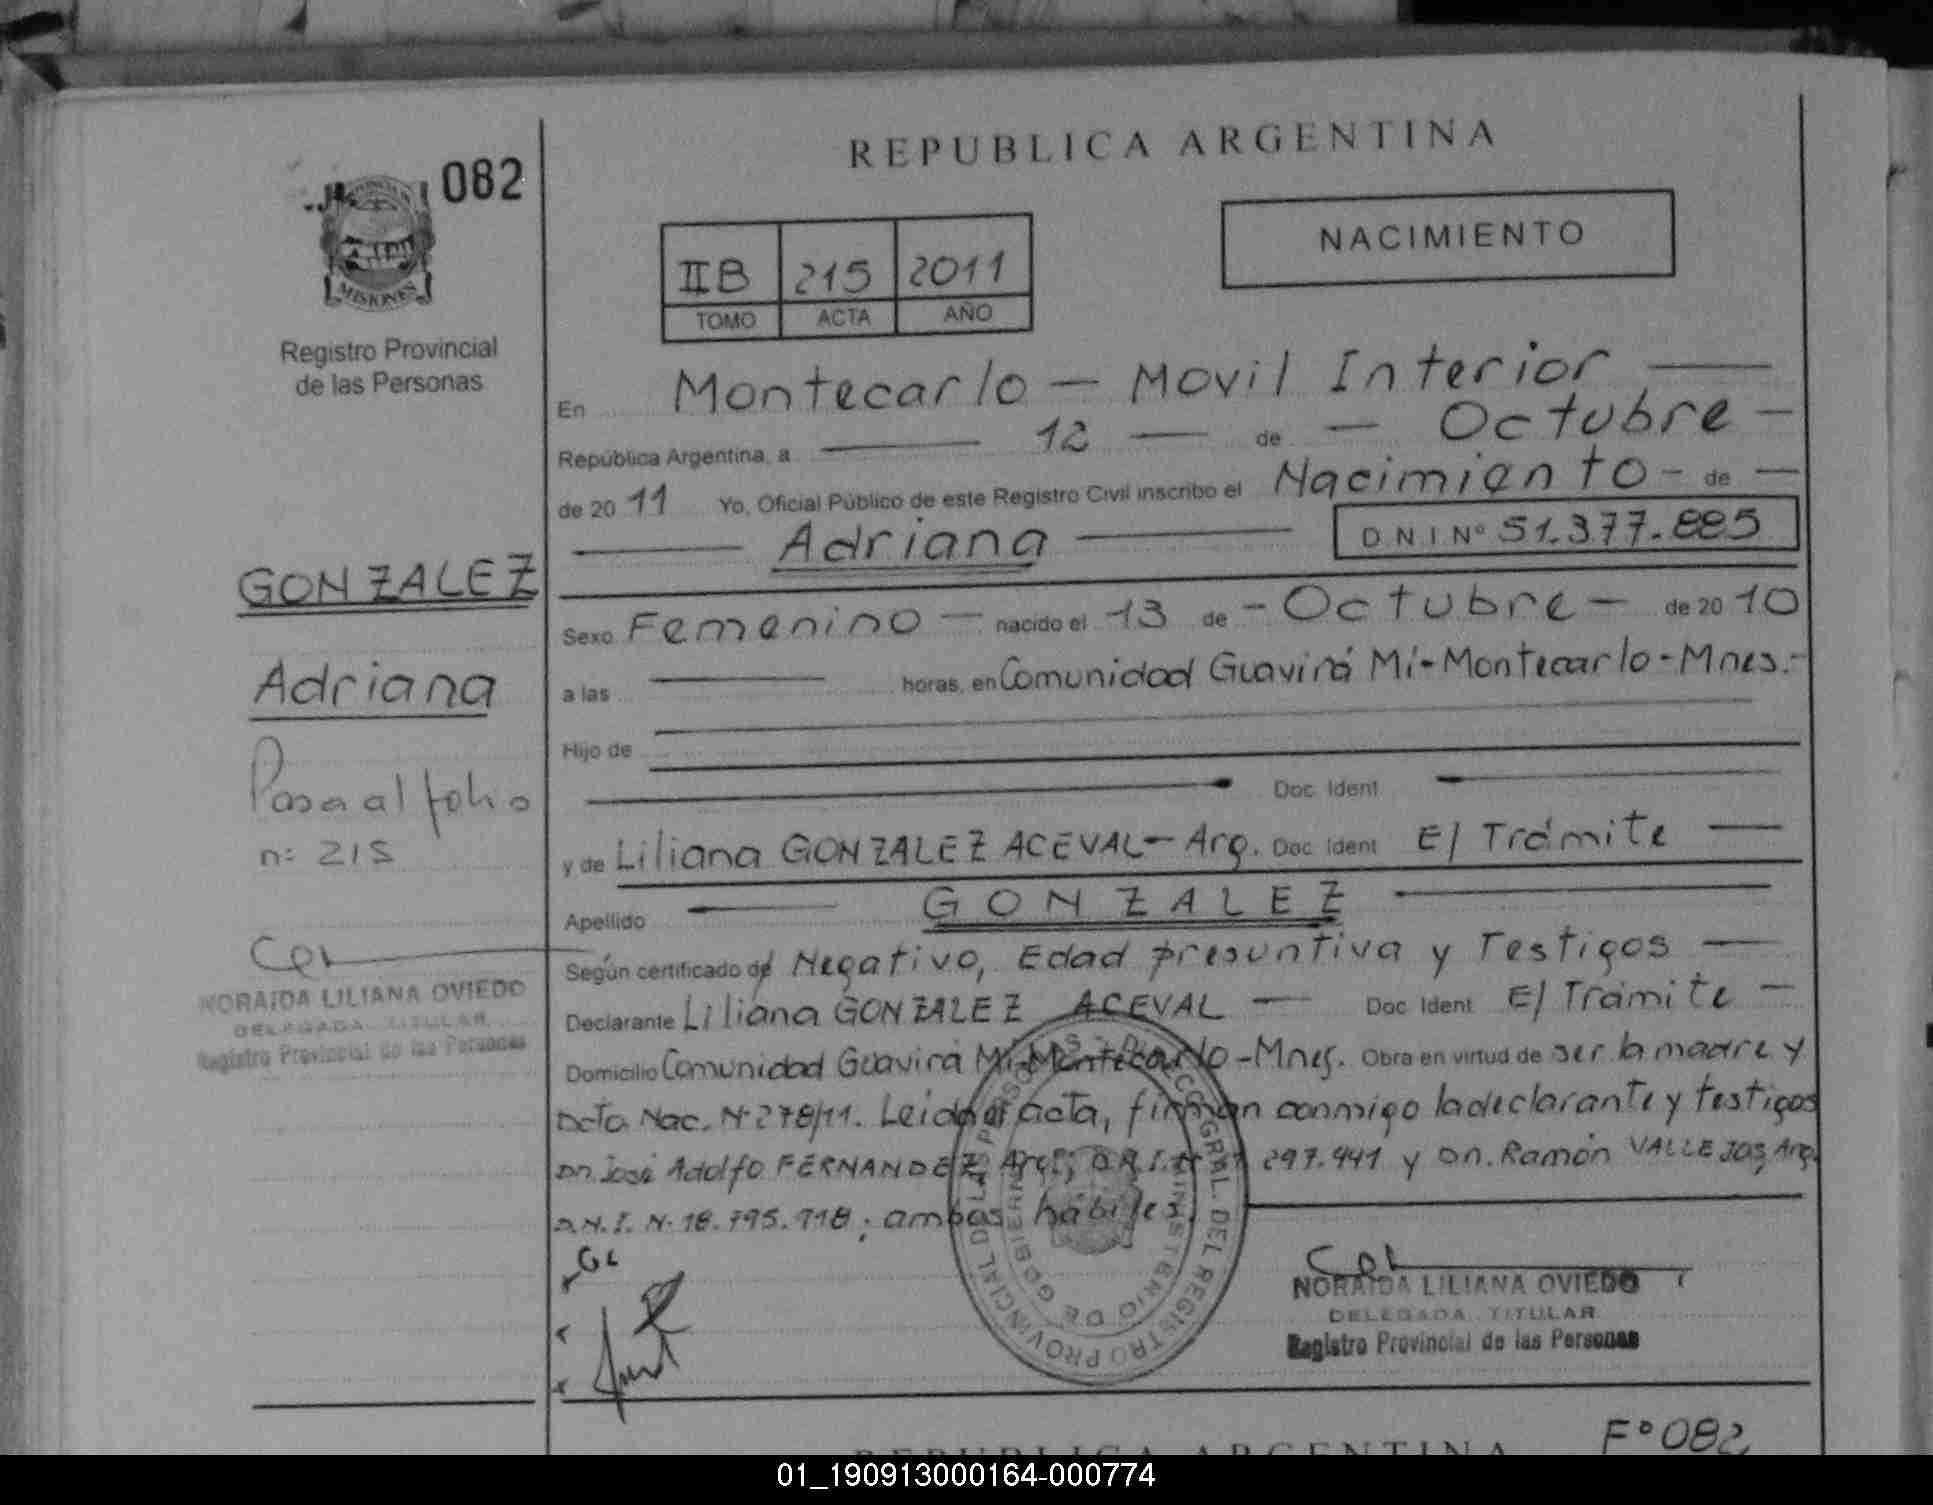 082
MISIONES
Registro Provincial
de las Personas
GONZALEZ
Adriana
Pasa al folio
n: 215
NORAIDA LILIANA OVIEDO
DELEGADA TITULAR
Registro Provincial de las Personas
REPUBLICA ARGENTINA
IIB 215 2011
TOMO ACTA AÑO
NACIMIENTO
En Montecarlo — Movil Interior —
República Argentina, a — 12 — de — Octubre —
de 2011 Yo, Oficial Público de este Registro Civil inscribo el Nacimiento - de —
— Adriana — D N I Nº 51.377.885
Sexo Femenino — nacido el 13 de - Octubre — de 2010
a las — horas, en Comunidad Guavirá Mí-Montecarlo-Mnes.-
Hijo de
Doc. Ident
y de Liliana GONZALEZ ACEVAL — Arg. Doc Ident E/ Trámite —
Apellido — GONZALEZ —
Según certificado de Negativo, Edad presuntiva y Testigos —
Declarante Liliana GONZALEZ ACEVAL — Doc Ident E/ Trámite —
Domicilio Comunidad Guavirá Mi-Montecarlo-Mnes. Obra en virtud de ser la madre y
Acta Nac. Nº 278/11. Leida el acta, firman conmigo la declarante y testigos
Dn. José Adolfo FERNANDEZ, Arg., 297.441 y Dn. Ramón VALLEJOS, Arg.
D.N.I. Nº 18.795.718; ambos hábiles.
GL
NORAIDA LILIANA OVIEDO
DELEGADA TITULAR
Registro Provincial de las Personas
REPUBLICA ARGENTINA
Fº 082
01_190913000164-000774